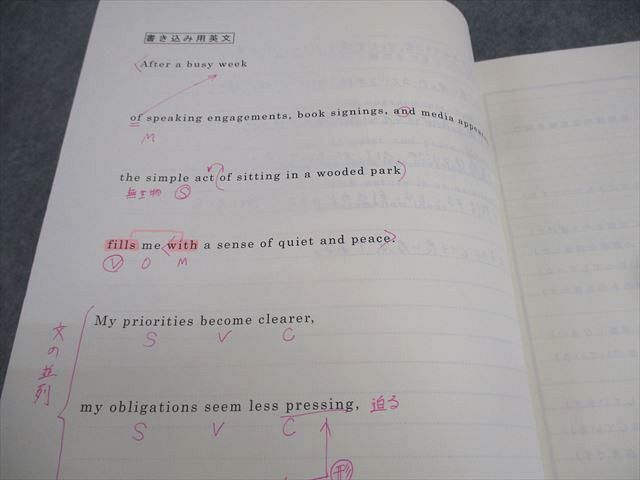 書き込み用英文
After a busy week
of speaking engagements, book signings, and media
M
the simple act of sitting in a wooded park
無生物 S
fills me with a sense of quiet and peace.
V O M
My priorities become clearer,
S V C
文の並列
my obligations seem less pressing, 迫る
S V C
形